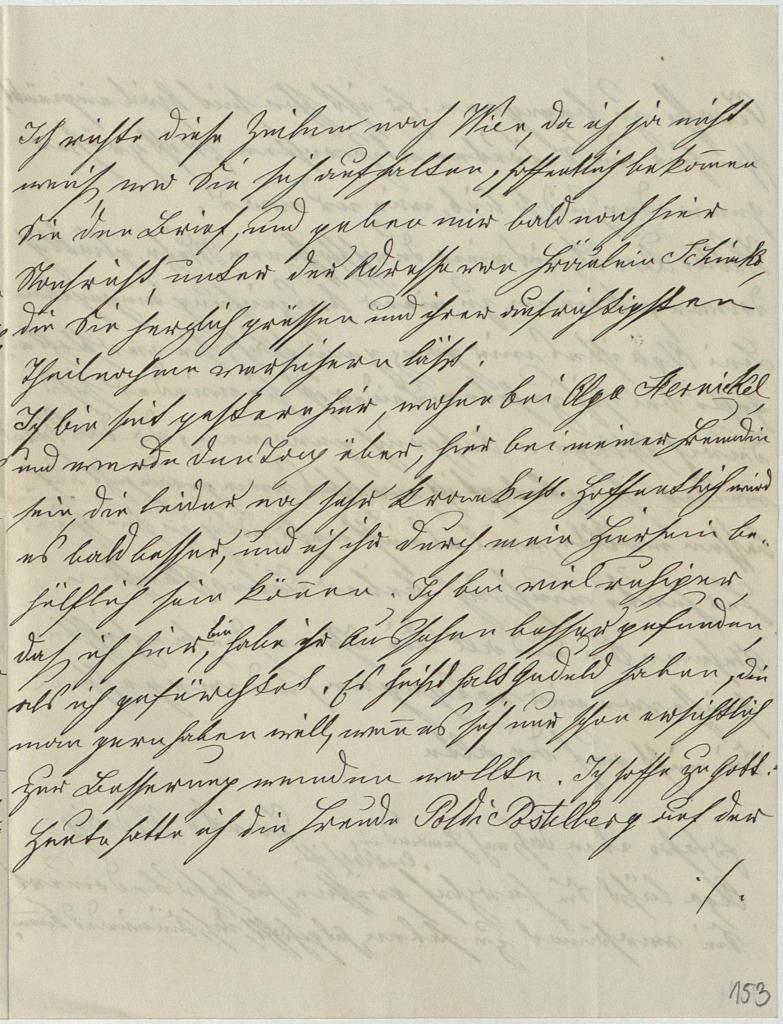 Ich richte diese Zeilen nach Wien, da ich ja nicht
weiß, wo Sie sich aufhalten, hoffentlich bekommen
Sie den Brief, und geben mir bald noch hier
Nachricht, unter der Adresse von Fräulein Schinko,
die Sie herzlich grüssen und ihrer aufrichtigsten
Theilnahme versichern läßt.
Ich bin seit gestern hier, wohne bei Olga Hernickel,
und werde den Tag über, hier bei meiner Freundin
sein, die leider noch sehr krank ist. Hoffentlich wird
es bald besser, und ich ihr durch mein Hiersein be-
hülflich sein können. Ich bin viel ruhiger,
daß ich hier bin, habe ihr Aussehen besser gefunden,
als ich gefürchtet. Es heißt halt Geduld haben, die
man gern haben will, wenn es sich nur schon ersichtlich
zur Besserung wenden wollte. Ich hoffe zu Gott.
Heute hatte ich die Freude Poldi Postelberg auf der
./.
153